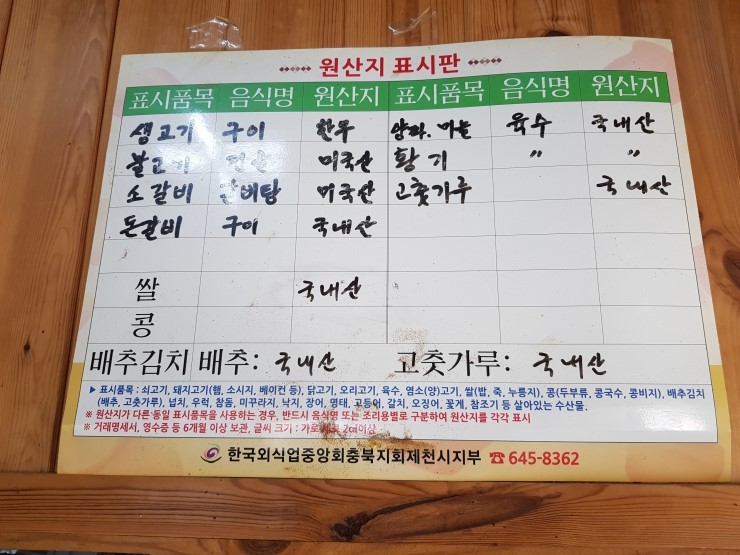 원산지 표시판
표시품목 음식명 원산지 표시품목 음식명 원산지
생고기 구이 한우 양파, 마늘 육수 국내산
불고기 미국산 황기 〃 〃
소갈비 갈비탕 미국산 고춧가루 국내산
돈갈비 구이 국내산
쌀 국내산
콩
배추김치 배추: 국내산 고춧가루: 국내산
▶ 표시품목 : 쇠고기, 돼지고기(햄, 소시지, 베이컨 등), 닭고기, 오리고기, 육수, 염소(양)고기, 쌀(밥, 죽, 누룽지), 콩(두부류, 콩국수, 콩비지), 배추김치
(배추, 고춧가루), 넙치, 우럭, 참돔, 미꾸라지, 낙지, 장어, 명태, 고등어, 갈치, 오징어, 꽃게, 참조기 등 살아있는 수산물.
※ 원산지가 다른·동일 표시품목을 사용하는 경우, 반드시 음식명 또는 조리용별로 구분하여 원산지를 각각 표시
※ 거래명세서, 영수증 등 6개월 이상 보관, 글씨 크기 : 가로 세로 2㎝이상
한국외식업중앙회충북지회제천시지부 ☎ 645-8362